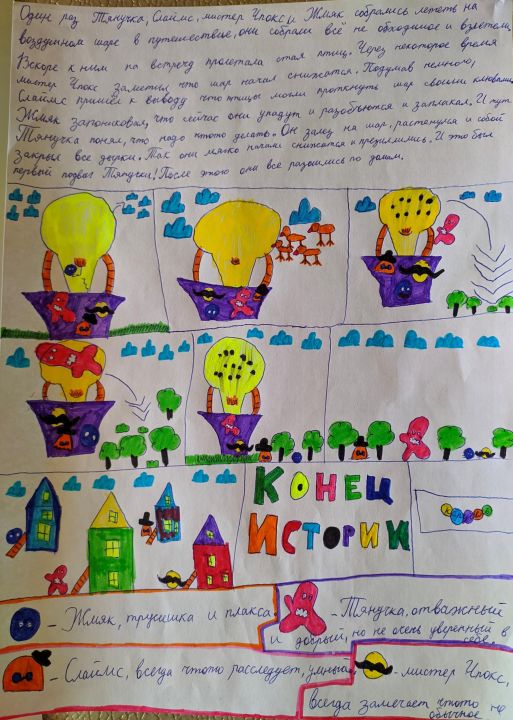 Один раз Тянучка, Слаймс, мистер Чпокс и Жмяк собрались лететь на
воздушном шаре в путешествие, они собрали все не обходимое и взлетели.
Вскоре к ним на встречу пролетала стая птиц. Через некоторое время
мистер Чпокс заметил что шар начал снижатся. Подумав немного,
Слаймс пришёл к выводу что птицы могли проткнуть шар своими клювами.
Жмяк запаниковал, что сейчас они упадут и разобьются и заплакал. И тут
Тянучка понял, что надо чтото делать. Он залез на шар, растянулся и собой
закрыл все дырки. Так они мягко начали снижатся и приземлились. И это был
первый подвиг Тянучки! После этого они все разошлись по домам.
КОНЕЦ
ИСТОРИИ
- Жмяк, трусишка и плакса
- Тянучка, отважный
и добрый, но не очень уверенный в
себе.
- Слаймс, всегда чтото расследует, умный
- мистер Чпокс,
всегда замечает чтото не
обычное